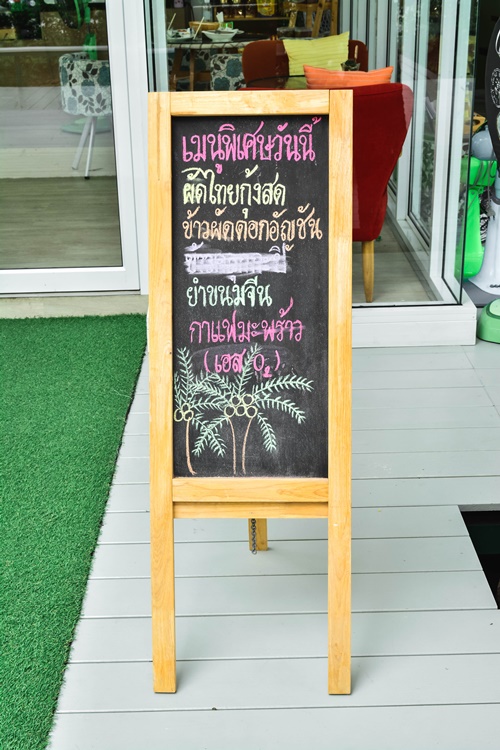 เมนูพิเศษวันนี้
ผัดไทยกุ้งสด
ข้าวผัดดอกอัญชัน
ยำขนมจีน
กาแฟมะพร้าว
(เฮส O₂)